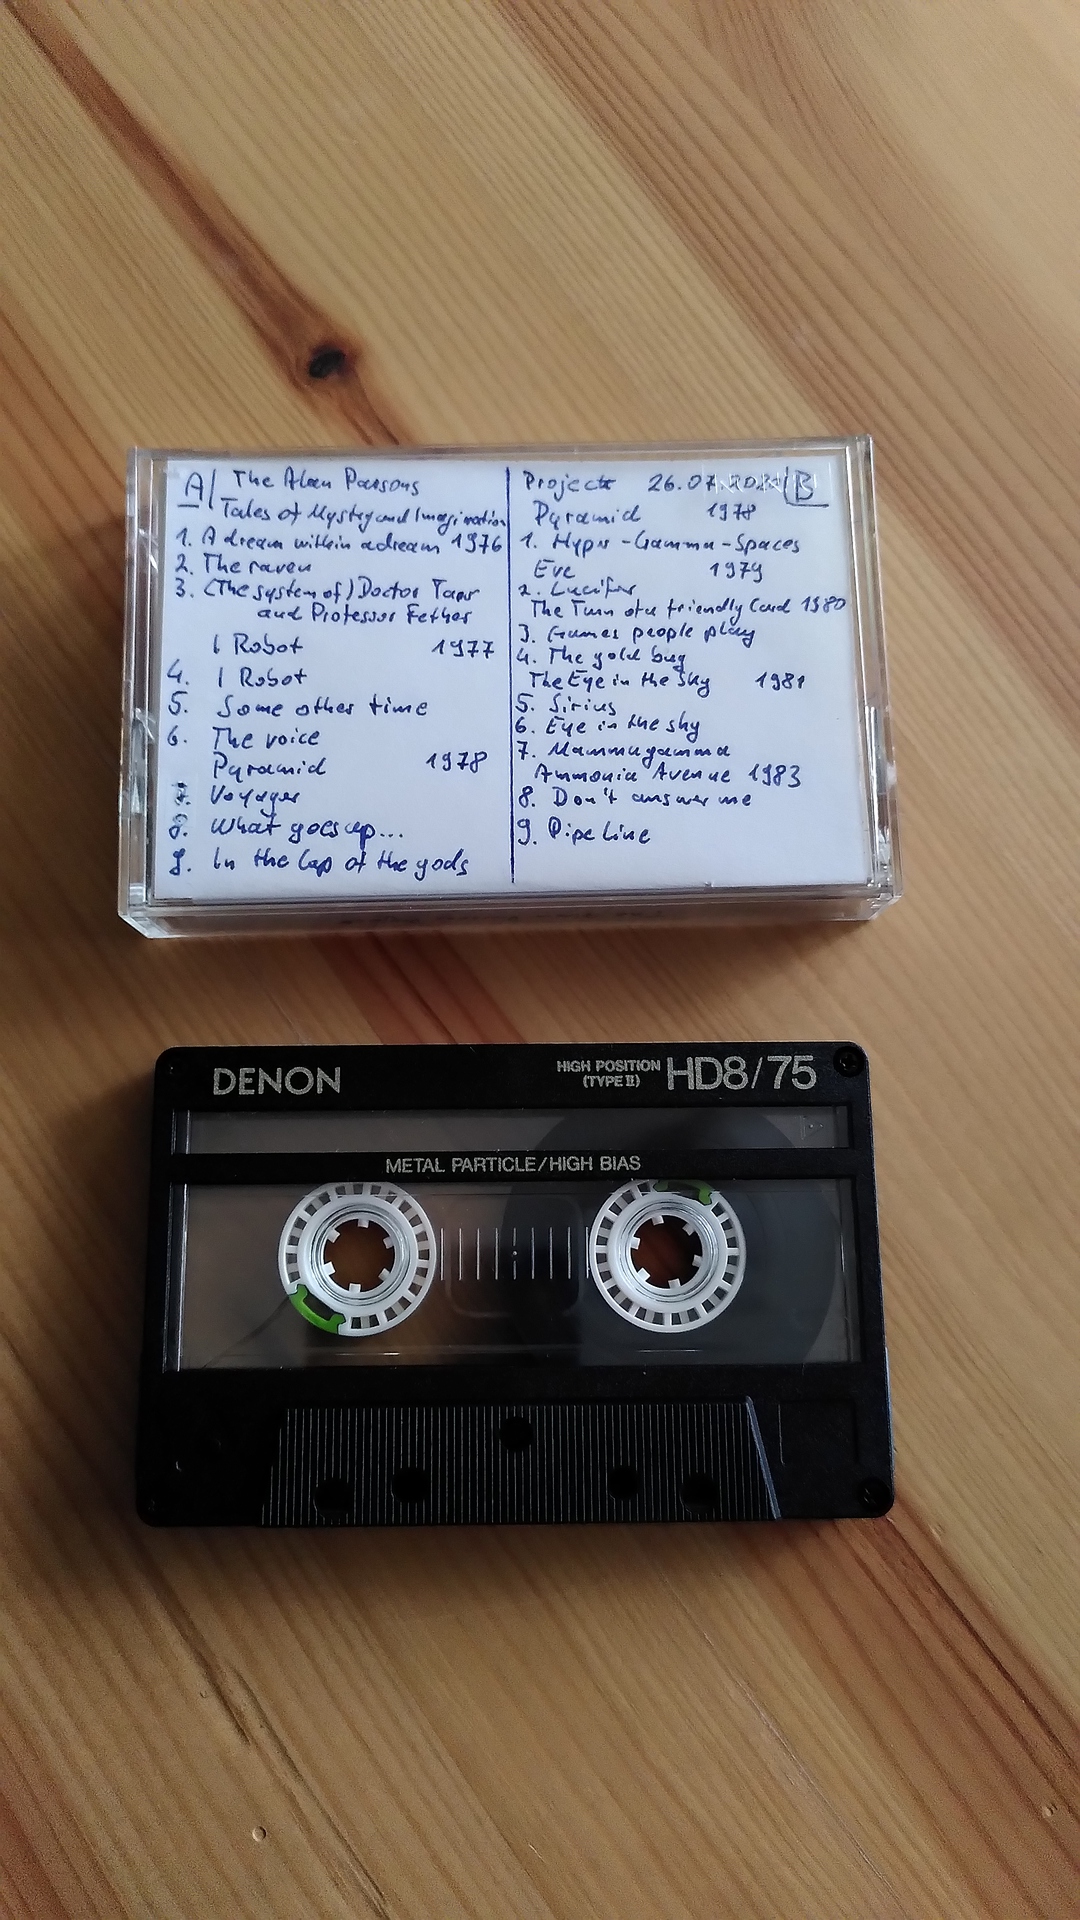 A
The Alan Parsons
Tales of Mystery and Imagination
1. A dream within a dream 1976
2. The raven
3. (The system of) Doctor Tarr
and Professor Fether
I Robot 1977
4. I Robot
5. Some other time
6. The voice
Pyramid 1978
7. Voyager
8. What goes up...
9. In the lap of the gods
Project 26.07.2021 B
Pyramid 1978
1. Hyper-Gamma-Spaces
Eve 1979
2. Lucifer
The Turn of a friendly Card 1980
3. Games people play
4. The gold bug
The Eye in the Sky 1981
5. Sirius
6. Eye in the sky
7. Mammagamma
Ammonia Avenue 1983
8. Don't answer me
9. Pipeline
DENON
HIGH POSITION
(TYPE II)
HD8/75
METAL PARTICLE/HIGH BIAS